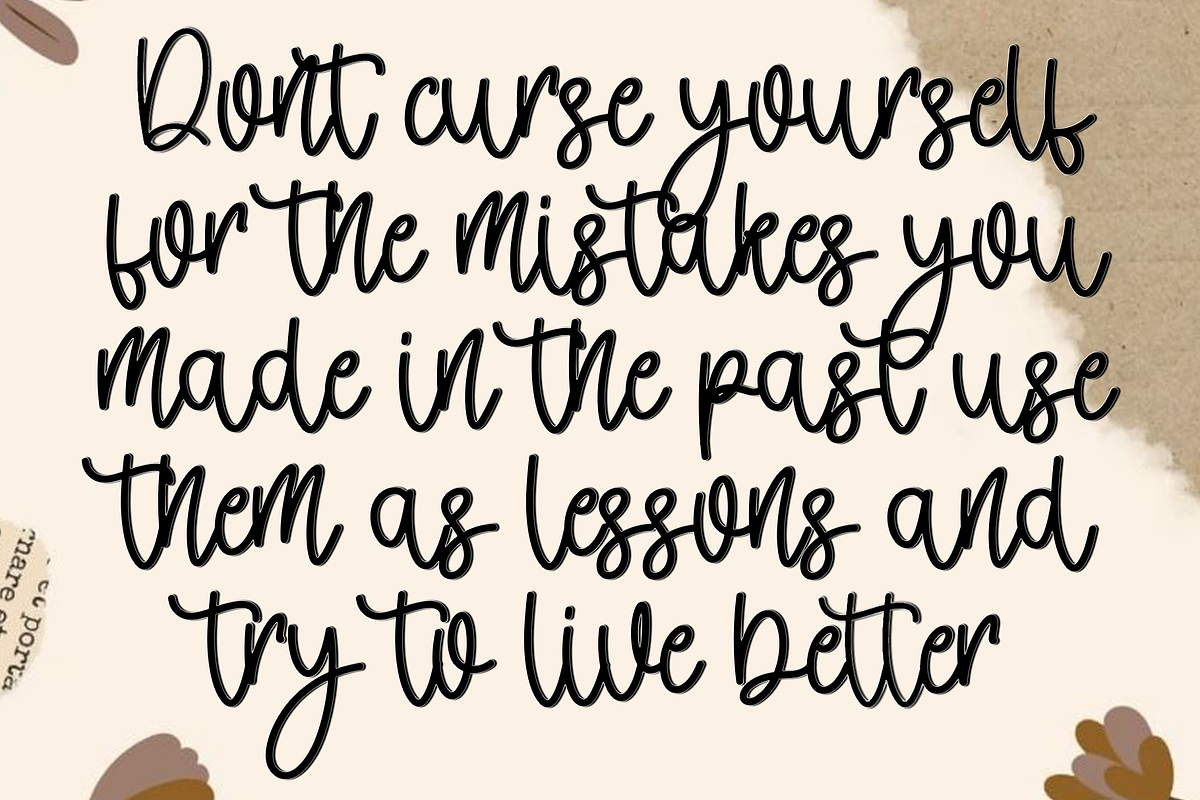 Don't curse yourself
for the mistakes you
made in the past use
them as lessons and
try to live better
et porta